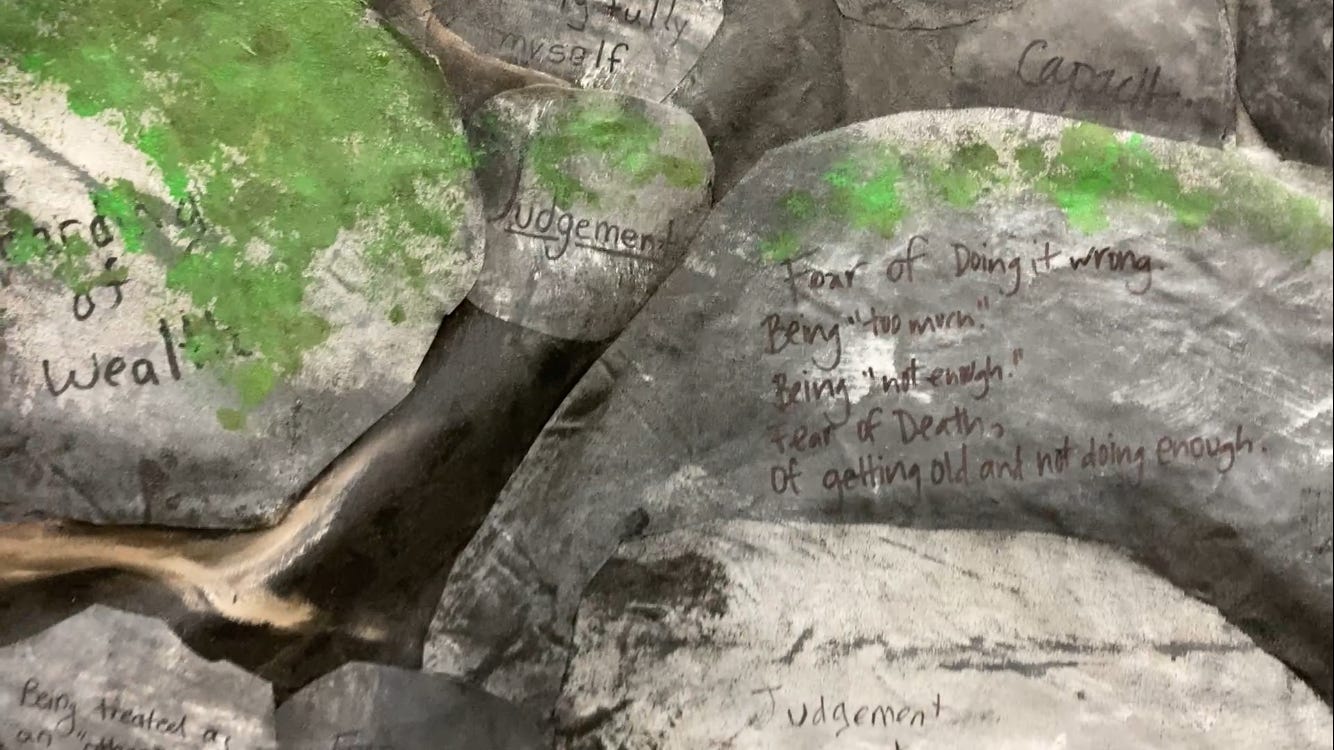 fully
myself
Capacit
Judgement
of
Wealth
Fear of Doing it wrong.
Being "too much."
Being "not enough."
Fear of Death,
Of getting old and not doing enough.
Judgement
Being treated as
an